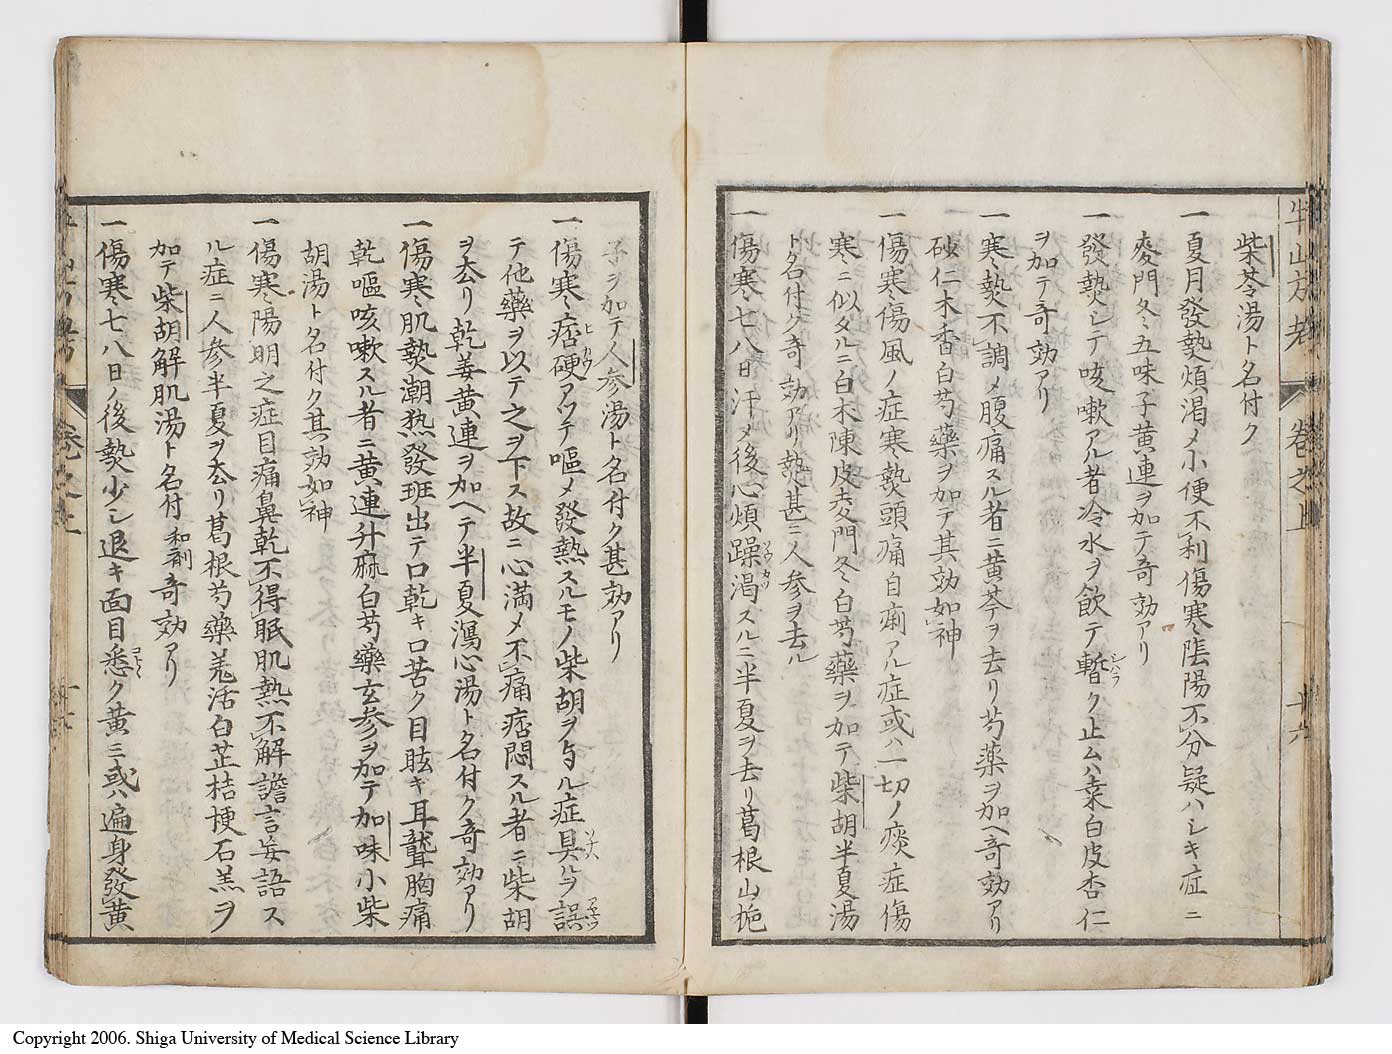 半山方考 卷之上 十六
柴苓湯ト名付ク
一夏月發𤍠煩渇〆小便不利傷寒陰陽不分疑ハシキ症ニ
麥門冬五味子黄連ヲ加テ奇効アリ
一發𤍠シテ咳嗽アル者冷水ヲ飲テ暫ク止ムハ桒白皮杏仁
シハラ
ヲ加テ奇効アリ
一寒𤍠不調〆腹痛スル者ニ黄芩ヲ去リ芍藥ヲ加ヘ奇効アリ
砂仁木香白芍藥ヲ加テ其効如神
一傷寒傷風ノ症寒𤍠頭痛自痢アル症或ハ一切ノ痰症傷
寒ニ似タルニ白朮陳皮麥門冬白芍藥ヲ加テ柴胡半夏湯
ト名付ク奇効アリ𤍠甚ニ人参ヲ去ル
一傷寒七八日汗〆後心煩躁渇スルニ半夏ヲ去リ葛根山梔
ソウカツ
子ヲ加テ人参湯ト名付ク甚効アリ
一傷寒痞硬アツテ嘔〆發熱スルモノ柴胡ヲ与ル症具ルヲ誤
ヒカウ
ソナハ
アヤマツ
テ他藥ヲ以テ之ヲ下ス故ニ心満〆不痛痞悶スル者ニ柴胡
ヲ去リ乾姜黄連ヲ加ヘテ半夏瀉心湯ト名付ク奇効アリ
一傷寒肌𤍠潮热發班出テ口乾キ口苦ク目眩キ耳聾胸痛
乾嘔咳嗽スル者ニ黄連升麻白芍藥玄参ヲ加テ加味小柴
胡湯ト名付ク其効如神
一傷寒陽明之症目痛鼻乾不得眠肌熱不解譫言妄語ス
ル症ニ人参半夏ヲ去リ葛根芍藥羌活白芷桔梗石羔ヲ
加テ柴胡解肌湯ト名付和劑奇効アリ
一傷寒七八日ノ後𤍠少シ退キ面目悉ク黄ニ或ハ遍身發黄
コトコト
Copyright 2006. Shiga University of Medical Science Library